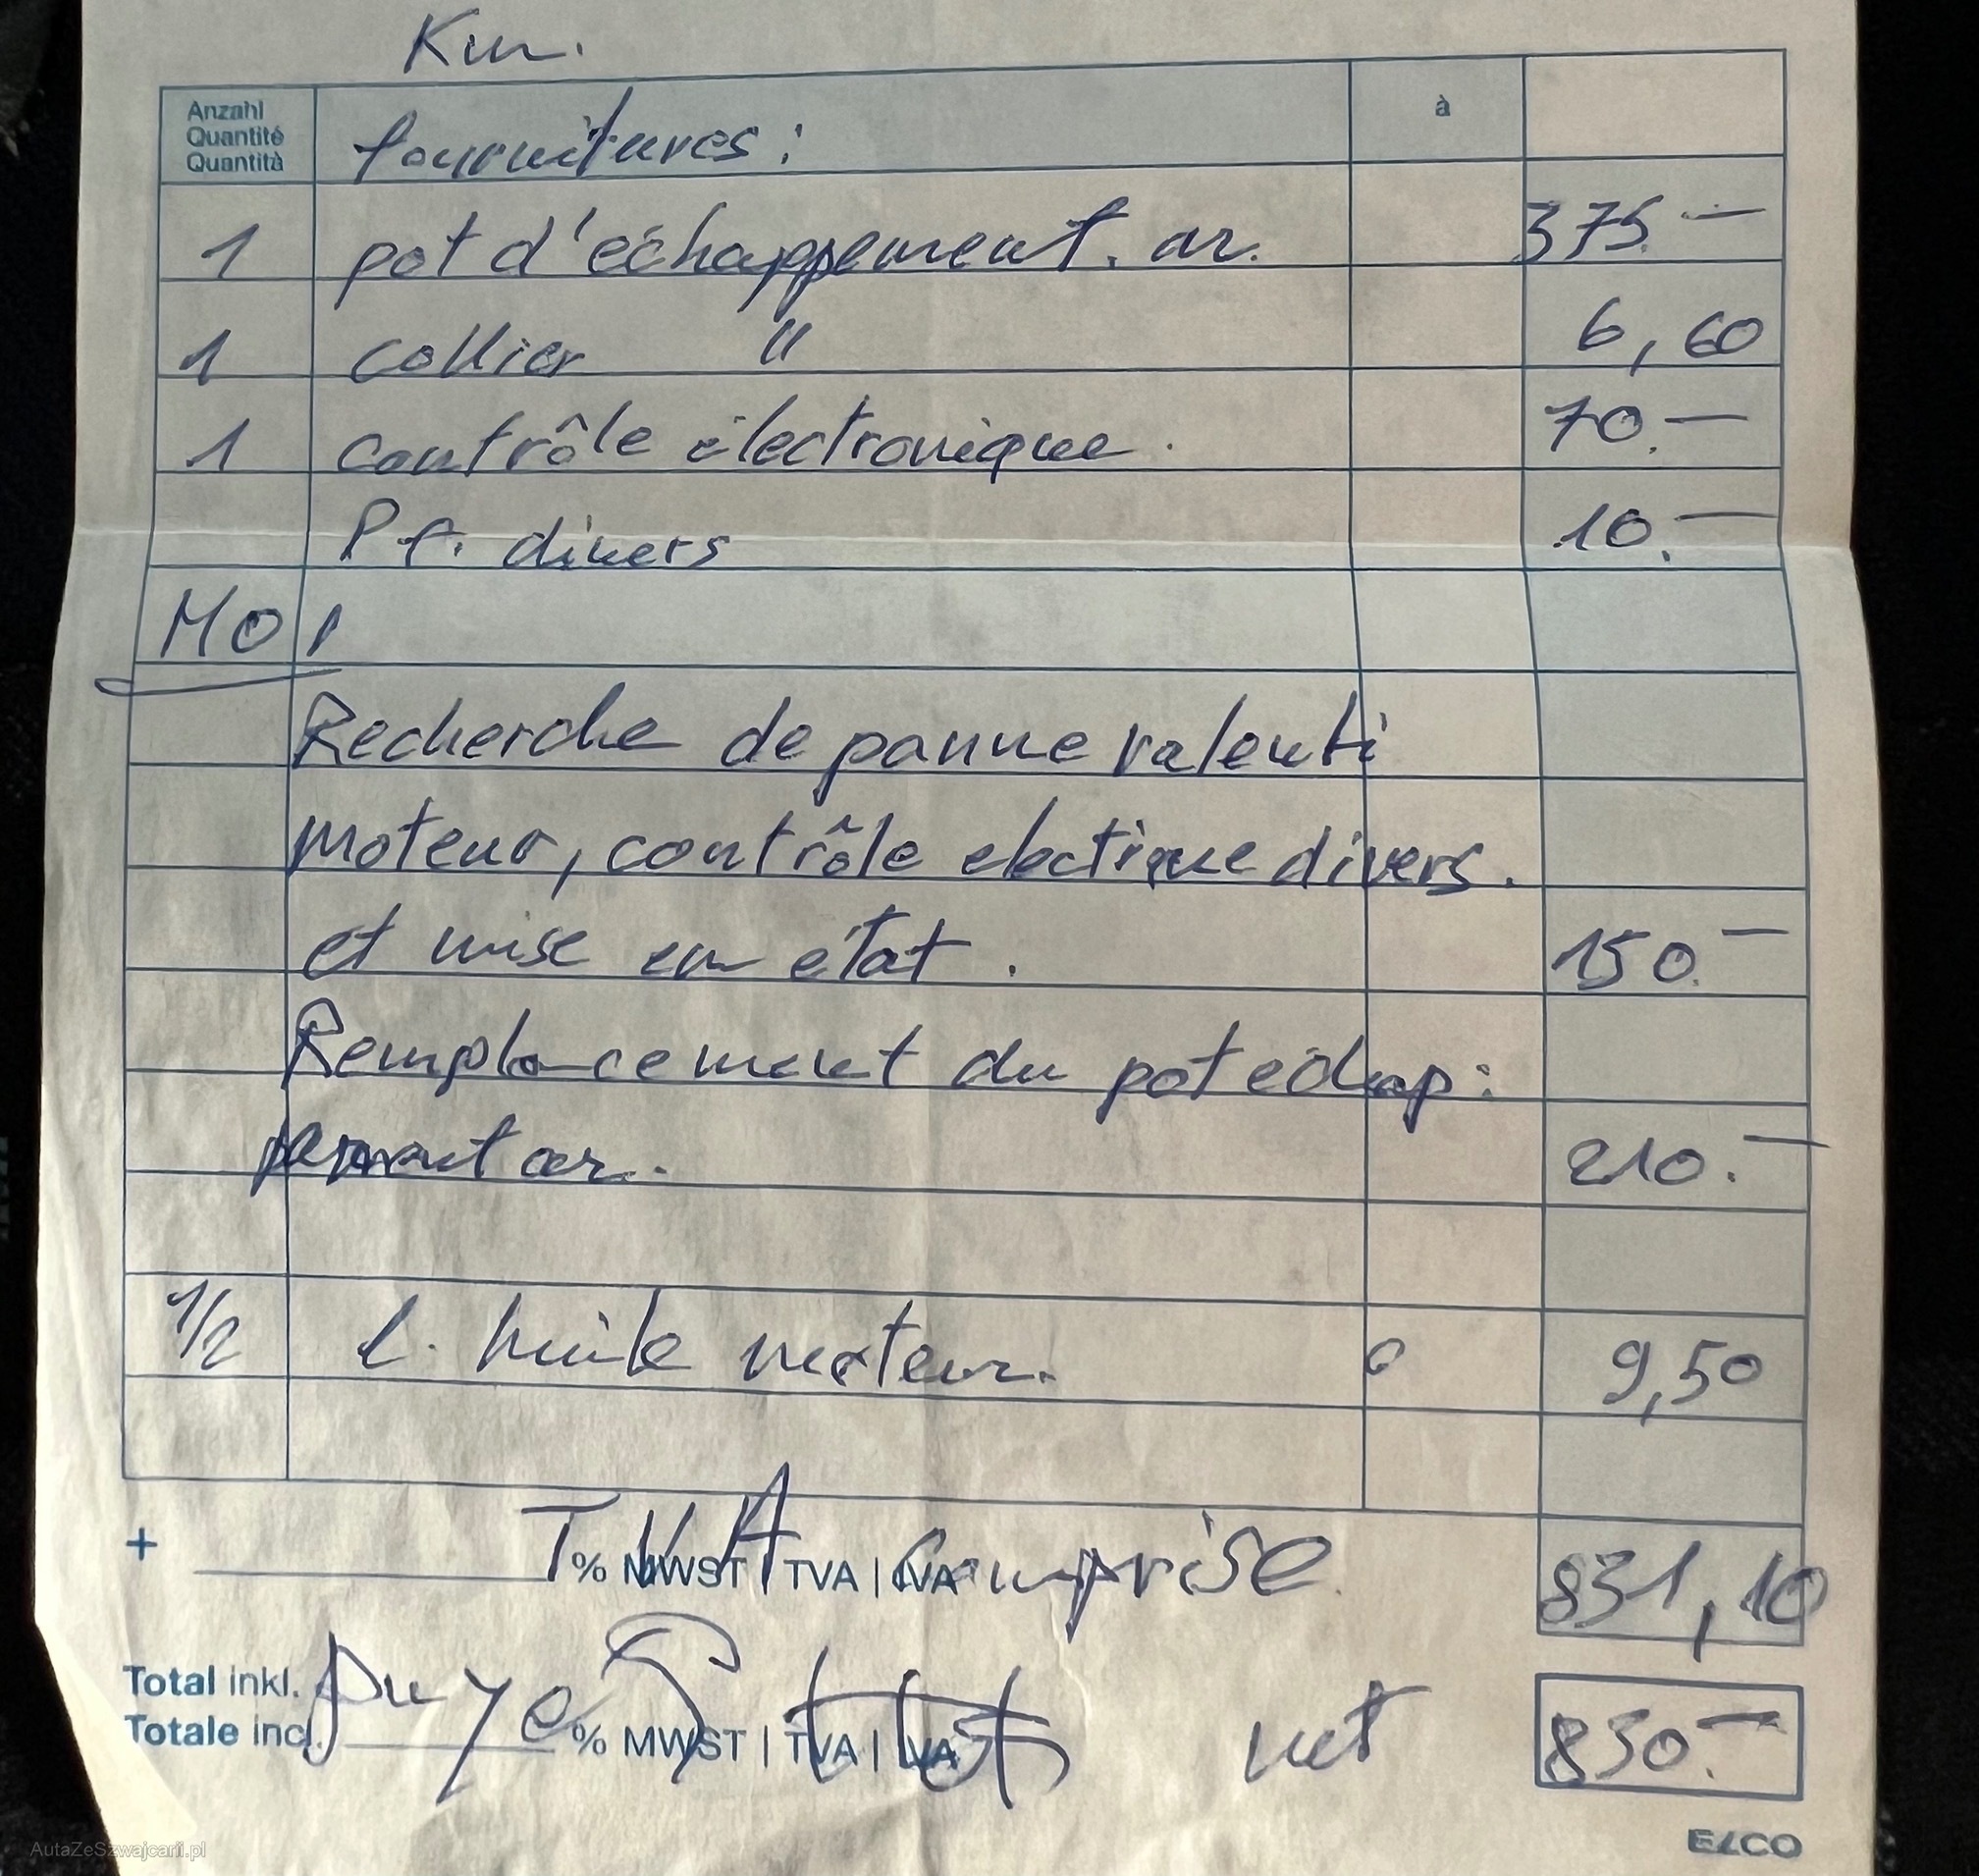 Km.
Anzahl
Quantité
Quantità
fournitures :
à
1 pot d'échappement. ar. 375.—
1 collier " 6,60
1 contrôle électronique. 70.—
Pf. divers 10.—
MO
Recherche de panne ralenti
moteur, contrôle electique divers.
et mise en état. 150.—
Remplacement du pot echap:
pement ar. 210.—
1/2 l. huile moteur. 9,50
+ % MWST | TVA | IVA
TVA comprise 831,10
Total inkl.
Totale incl. % MWST | TVA | IVA
payé net 830.—
ELCO
AutaZeSzwajcarii.pl